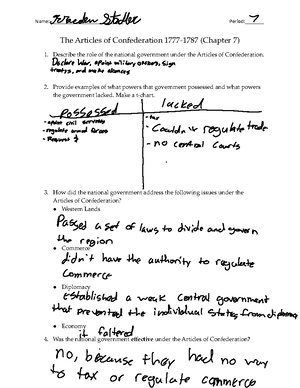 Name: Period: 7
The Articles of Confederation 1777-1787 (Chapter 7)
1. Describe the role of the national government under the Articles of Confederation.
Declare War, military officers, sign
treatys, and make alliances
2. Provide examples of what powers that government possessed and what powers
the government lacked. Make a t-chart.
possessed
lacked
- civil servants
- regulate armed forces
- Request $
- tax
- Couldn't regulate trade
- no central courts
3. How did the national government address the following issues under the
Articles of Confederation?
• Western Lands
Passed a set of laws to divide and govern
the region
• Commerce
didn't have the authority to regulate
commerce
• Diplomacy
Established a weak central government
that prevented the individual states from diplomacy
• Economy
it faltered
4. Was the national government effective under the Articles of Confederation?
no, because they had no way
to tax or regulate commerce